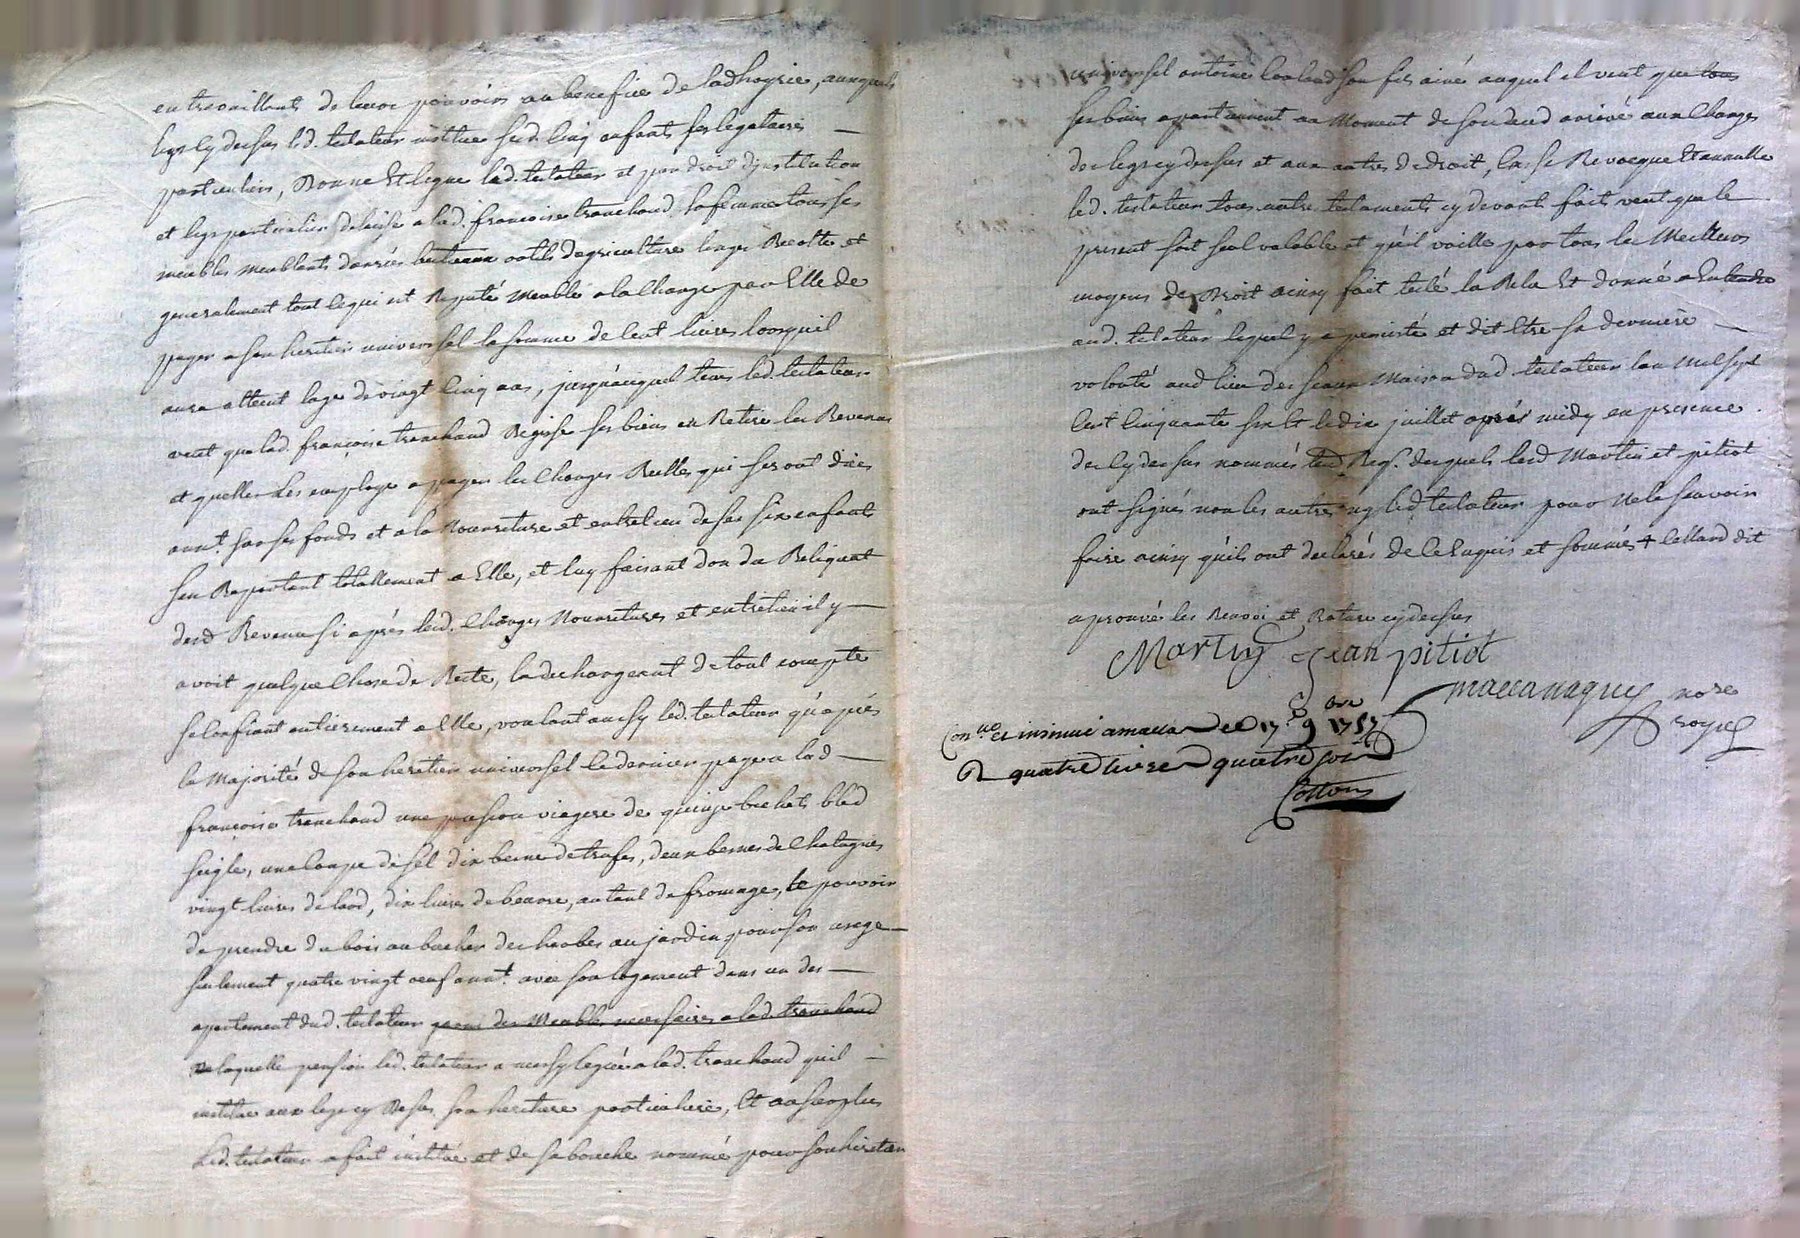 en travaillants de leur pouvoirs au benefice de lad hoyrie, auxquels
legs cy dessus led. testateur institue sesd. cinq enfants ses legataires
particuliers, Donne et legue led. testateur et par droit d'institution
et legs particulier delaisse a lad. françoise tranchand sa femme tous ses
meubles meublants danrées bestiaux outils d'agriculture linges Recolte et
generalement tout ce qui est Reputé Meuble a la Charge par Elle de
payer a son heritier universel la somme de Cent livres lorsqu'il
aura atteint l'age de vingt cinq ans, jusqu'auquel tems led. testateur
veut que lad. françoise tranchand Regisse ses biens en Retire les Revenus
et quelle les employe a payer les Charges Reelles qui seront dües
annt. sur ses fonds et a la Nourriture et entretien de ses six enfants
sen Raportant totallement a Elle, et luy faisant don du Reliquat
desd Revenus si aprés lesd. Charges Nourritures et entretien il y
avoit quelque Chose de Reste, la dechargeant de tout compte
se confiant entierement a elle, voulant aussy led. testateur qu'aprés
la Majorité de son heretier universel ce dernier paye a lad
françoise tranchand une pension viagere de quinze bichets bled
seigle, une Coupe de sel dix benne de trufes, deux bennes de Chatagnes
vingt livres de lard, dix livres de beurre, autant de fromage, le pouvoir
de prendre du bois au bucher des herbes au jardin pour son usage
seulement quatre vingt oeuf annt. avec son logement dans un des
apartement dud. testateur garni des Meubles necessaires a lad. tranchand
laquelle pension led. testateur a aussy leguée a lad. tranchand qu'il
institue aux legs cy Dessus son heritiere particuliere, Et au surplus
Led. testateur a fait institué et de sa bouche nommé pour son heretier
universel antoine son fils ainé auquel il veut que tous
ses biens apartiennent au Moment de son deces arrivé aux Charges
des legs cy dessus et aux autres de droit, Casse Revocque Et annulle
led. testateur tous autres testaments cy devant faits veut que le
present soit seul valable et qu'il vaille par tous les Meilleurs
moyens de Droit ainsy fait testé la Relu Et donné a Entendre
aud. testateur lequel y a persisté et dit Etre sa derniere
volonté aud lieu des Maison dud. testateur l'an Mil sept
Cent Cinquante sept le dix juillet aprés midy en presence
des Cy dessus nommés desquels lesd Martin et pitiot
ont signés non les autres ny led testateur pour Ne le sçavoir
faire ainsy qu'ils ont declarés de ce Enquis et sommés +
aprouvé les Renvoi et Rature cy dessus
Martin Jean pitiot
nore
royal
Conllé et insinué a le 17e 9bre 1757
R quatre livre quatre sols
Cottons